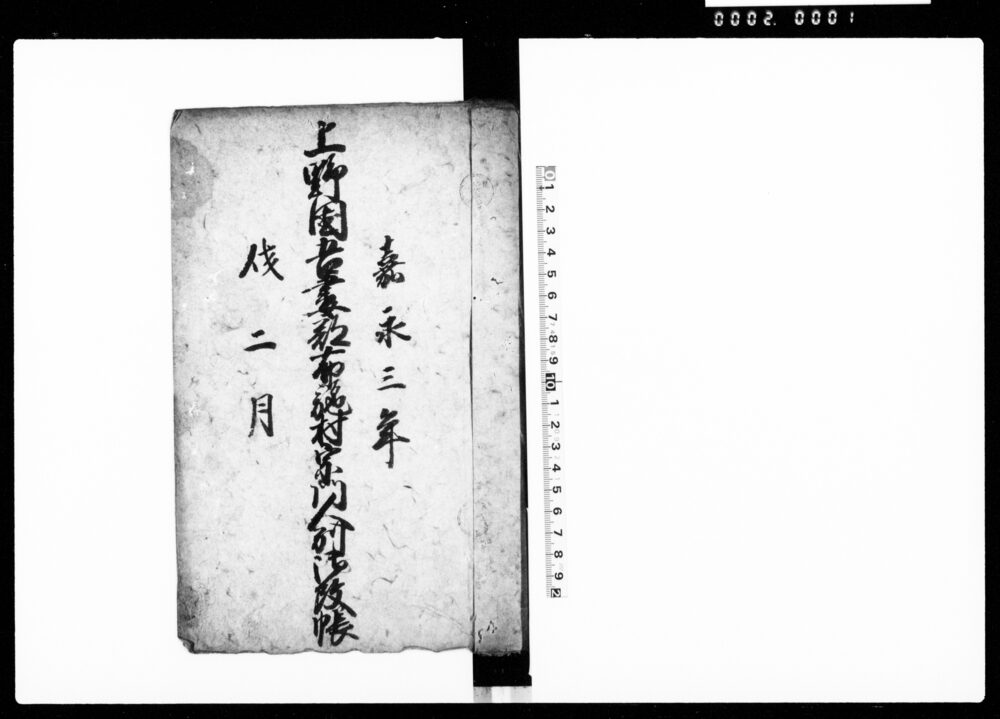 0002. 0001
嘉永三年
上野国吾妻郡布施村宗門人別御改帳
戌二月
0 1 2 3 4 5 6 7 8 9 10 1 2 3 4 5 6 7 8 9 2